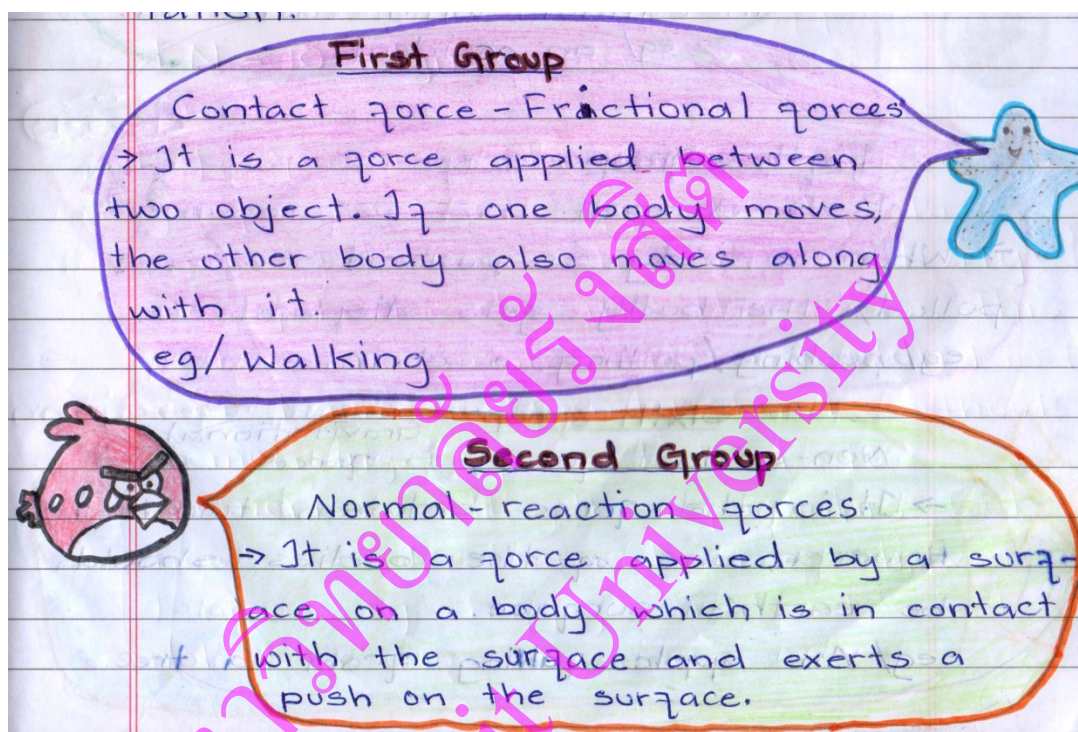 First Group
Contact force - Frictional forces
→ It is a force applied between
two object. If one body moves,
the other body also moves along
with it.
eg/ Walking
Second Group
Normal - reaction forces.
→ It is a force applied by a surf-
ace on a body which is in contact
with the surface and exerts a
push on the surface.